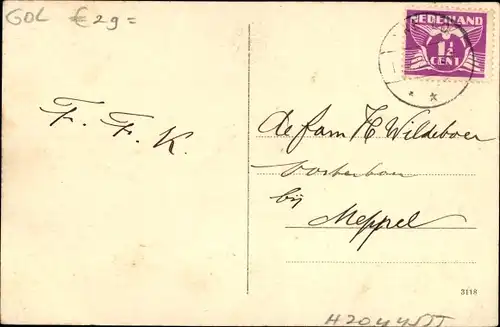 GDL € 29=
NEDERLAND
1½
CENT
F. F. K.
de fam H Wildeboer
Oosterboer
bij
Meppel
3118